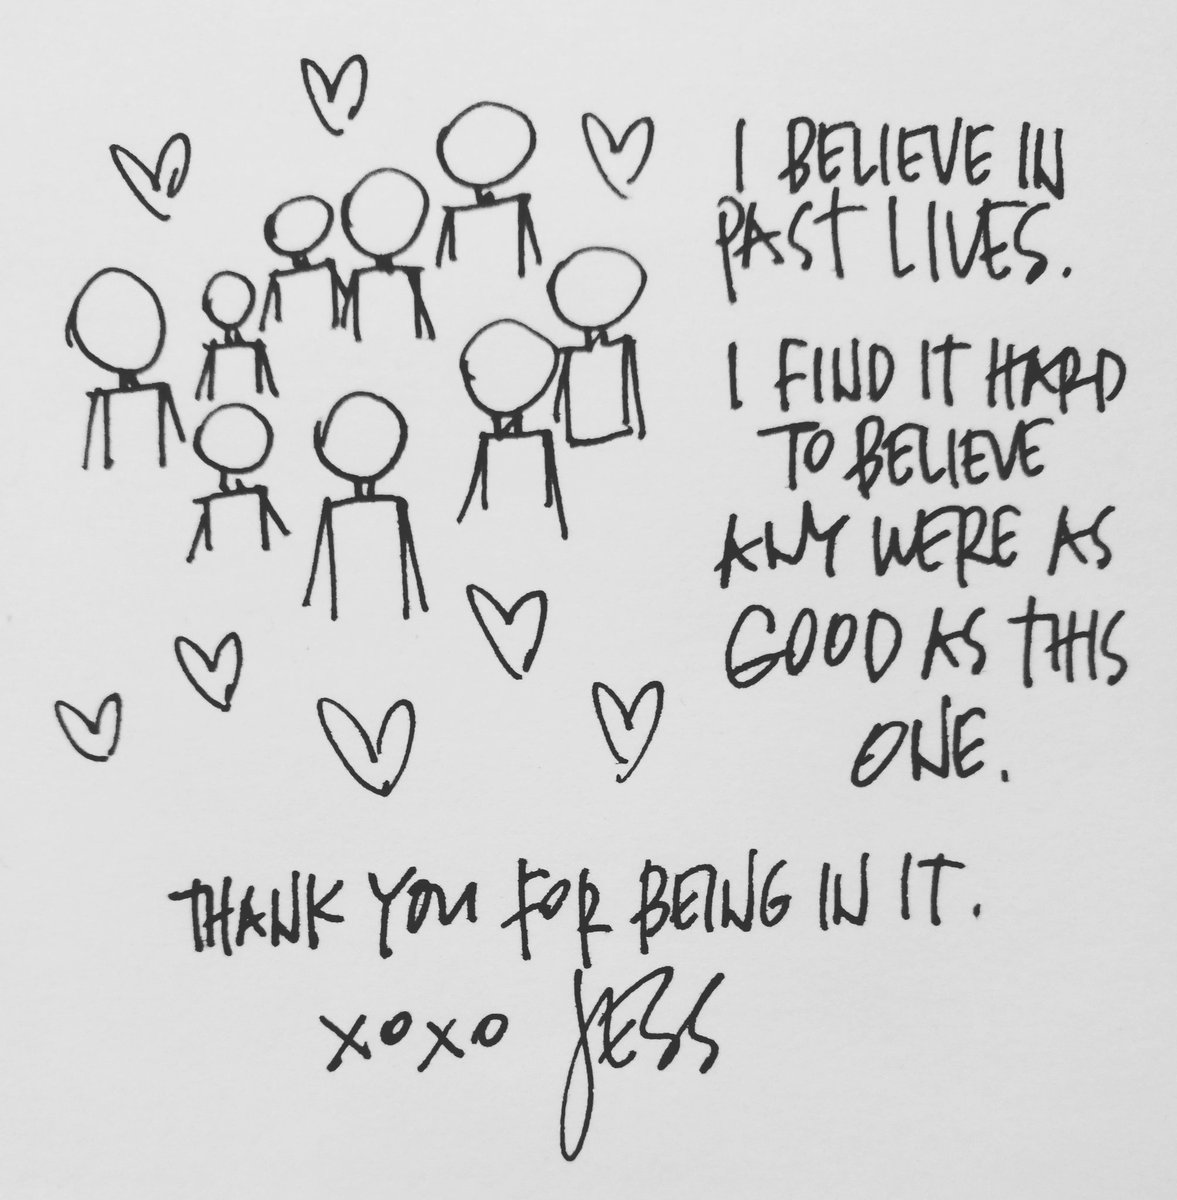 I BELIEVE IN
PAST LIVES.
I FIND IT HARD
TO BELIEVE
ANY WERE AS
GOOD AS THIS
ONE.
THANK YOU FOR BEING IN IT.
XOXO JESS